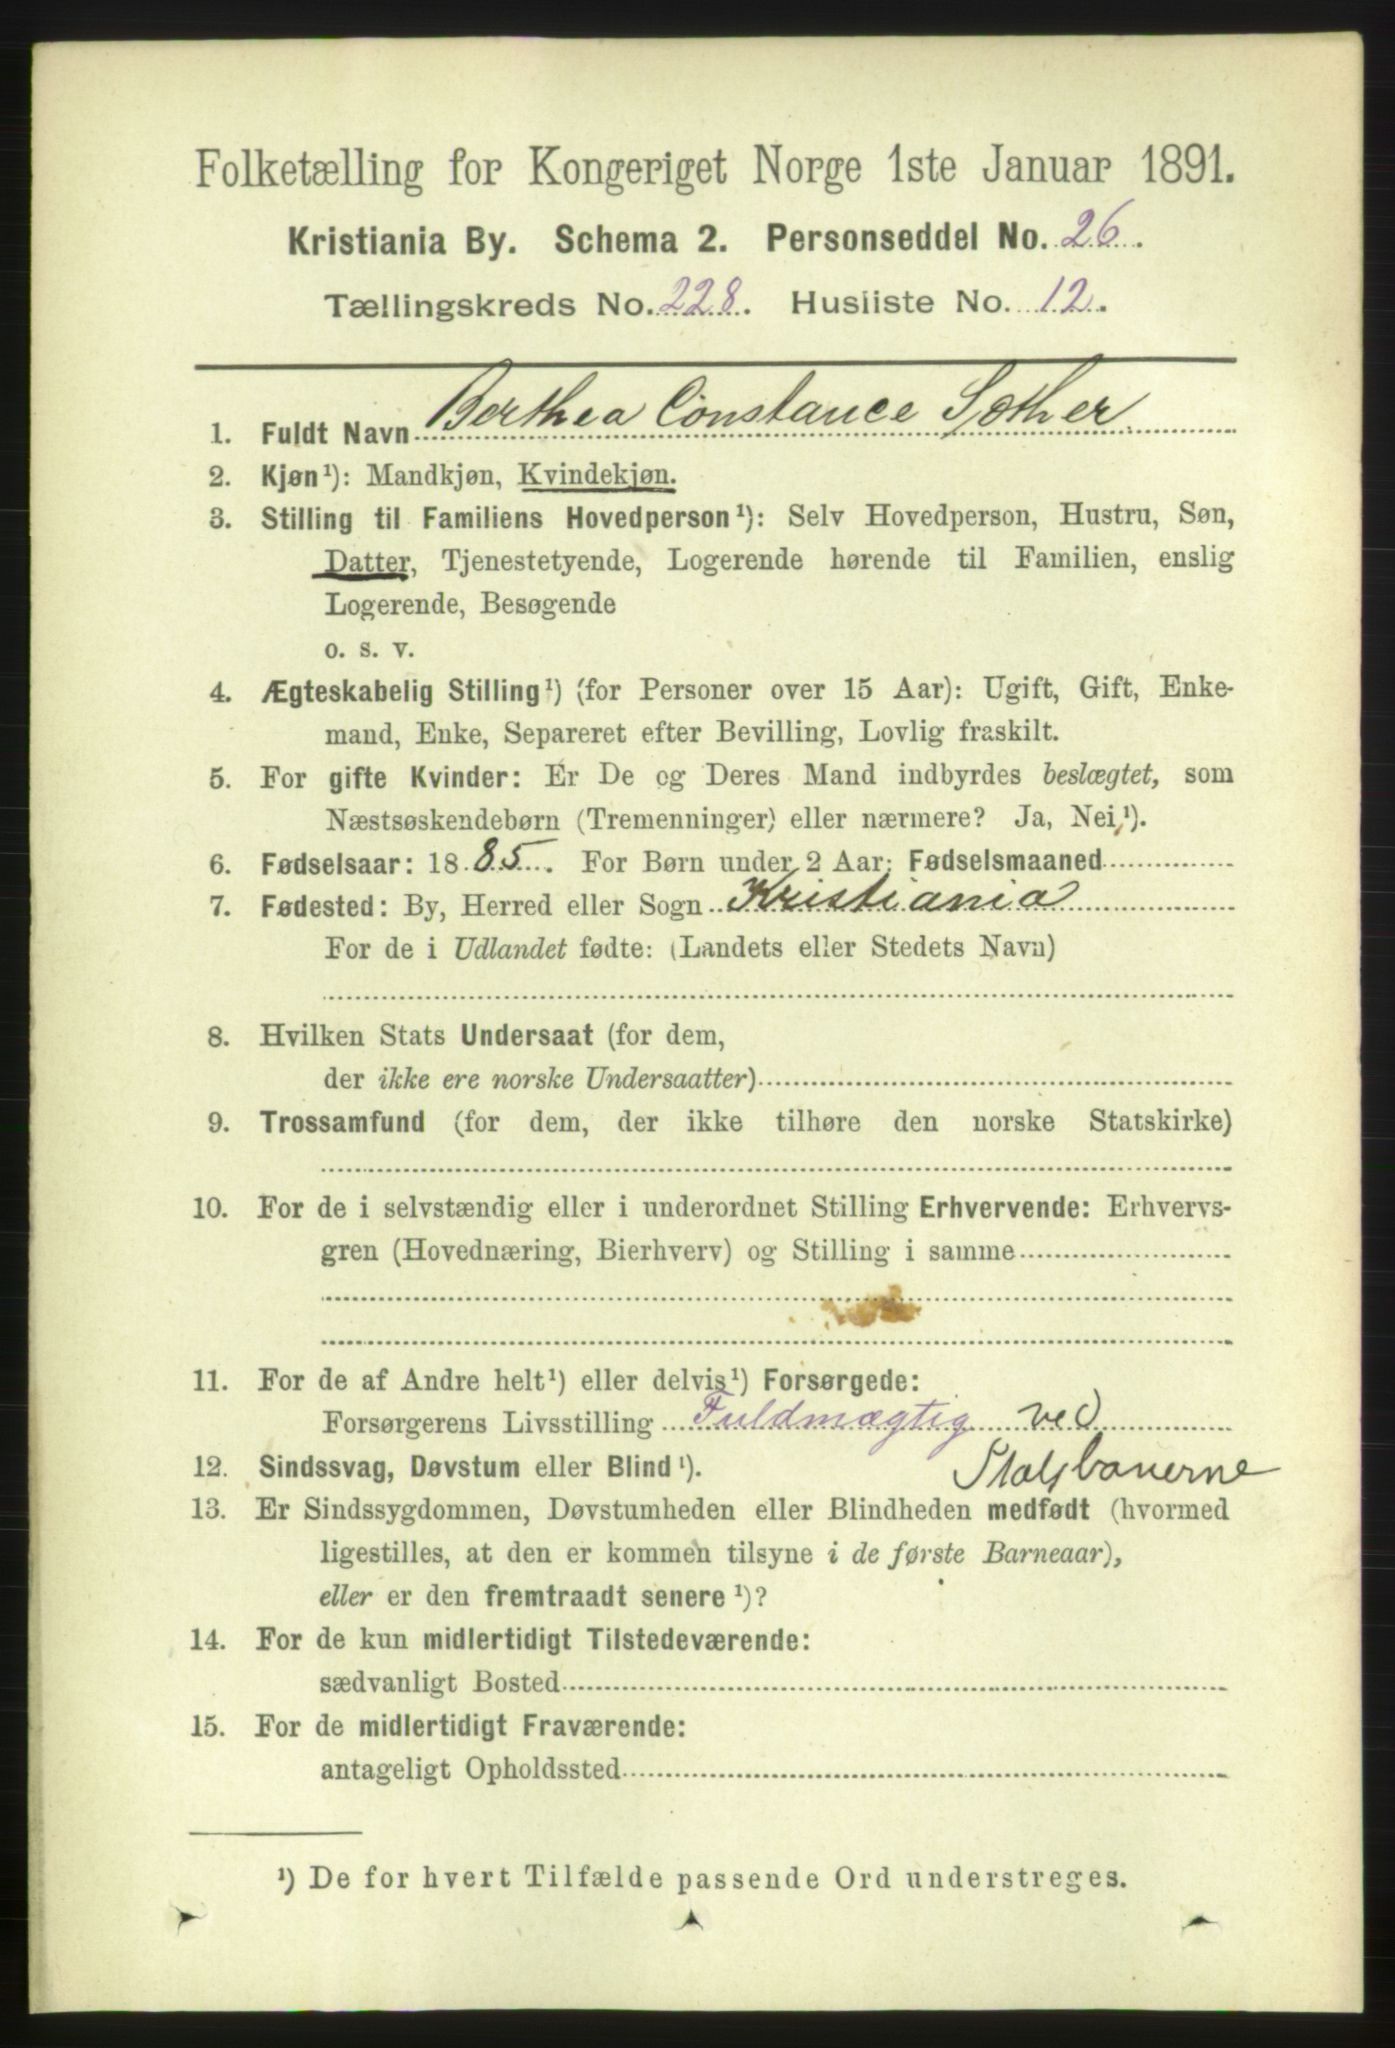 Folketælling for Kongeriget Norge 1ste Januar 1891.
Kristiania By. Schema 2. Personseddel No. 26.
Tællingskreds No. 228. Husliste No. 12.
1. Fuldt Navn Berthea Constance Søther
2. Kjøn¹): Mandkjøn, Kvindekjøn.
3. Stilling til Familiens Hovedperson¹): Selv Hovedperson, Hustru, Søn,
Datter, Tjenestetyende, Logerende hørende til Familien, enslig
Logerende, Besøgende
o. s. v.
4. Ægteskabelig Stilling¹) (for Personer over 15 Aar): Ugift, Gift, Enke-
mand, Enke, Separeret efter Bevilling, Lovlig fraskilt.
5. For gifte Kvinder: Er De og Deres Mand indbyrdes beslægtet, som
Næstsøskendebørn (Tremenninger) eller nærmere? Ja, Nei¹).
6. Fødselsaar: 1885. For Børn under 2 Aar: Fødselsmaaned
7. Fødested: By, Herred eller Sogn Kristiania
For de i Udlandet fødte: (Landets eller Stedets Navn)
8. Hvilken Stats Undersaat (for dem,
der ikke ere norske Undersaatter)
9. Trossamfund (for dem, der ikke tilhøre den norske Statskirke)
10. For de i selvstændig eller i underordnet Stilling Erhvervende: Erhvervs-
gren (Hovednæring, Bierhverv) og Stilling i samme
11. For de af Andre helt¹) eller delvis¹) Forsørgede:
Forsørgerens Livsstilling Fuldmægtig ved
Statsbanerne
12. Sindssvag, Døvstum eller Blind¹).
13. Er Sindssygdommen, Døvstumheden eller Blindheden medfødt (hvormed
ligestilles, at den er kommen tilsyne i de første Barneaar),
eller er den fremtraadt senere¹)?
14. For de kun midlertidigt Tilstedeværende:
sædvanligt Bosted
15. For de midlertidigt Fraværende:
antageligt Opholdssted
¹) De for hvert Tilfælde passende Ord understreges.